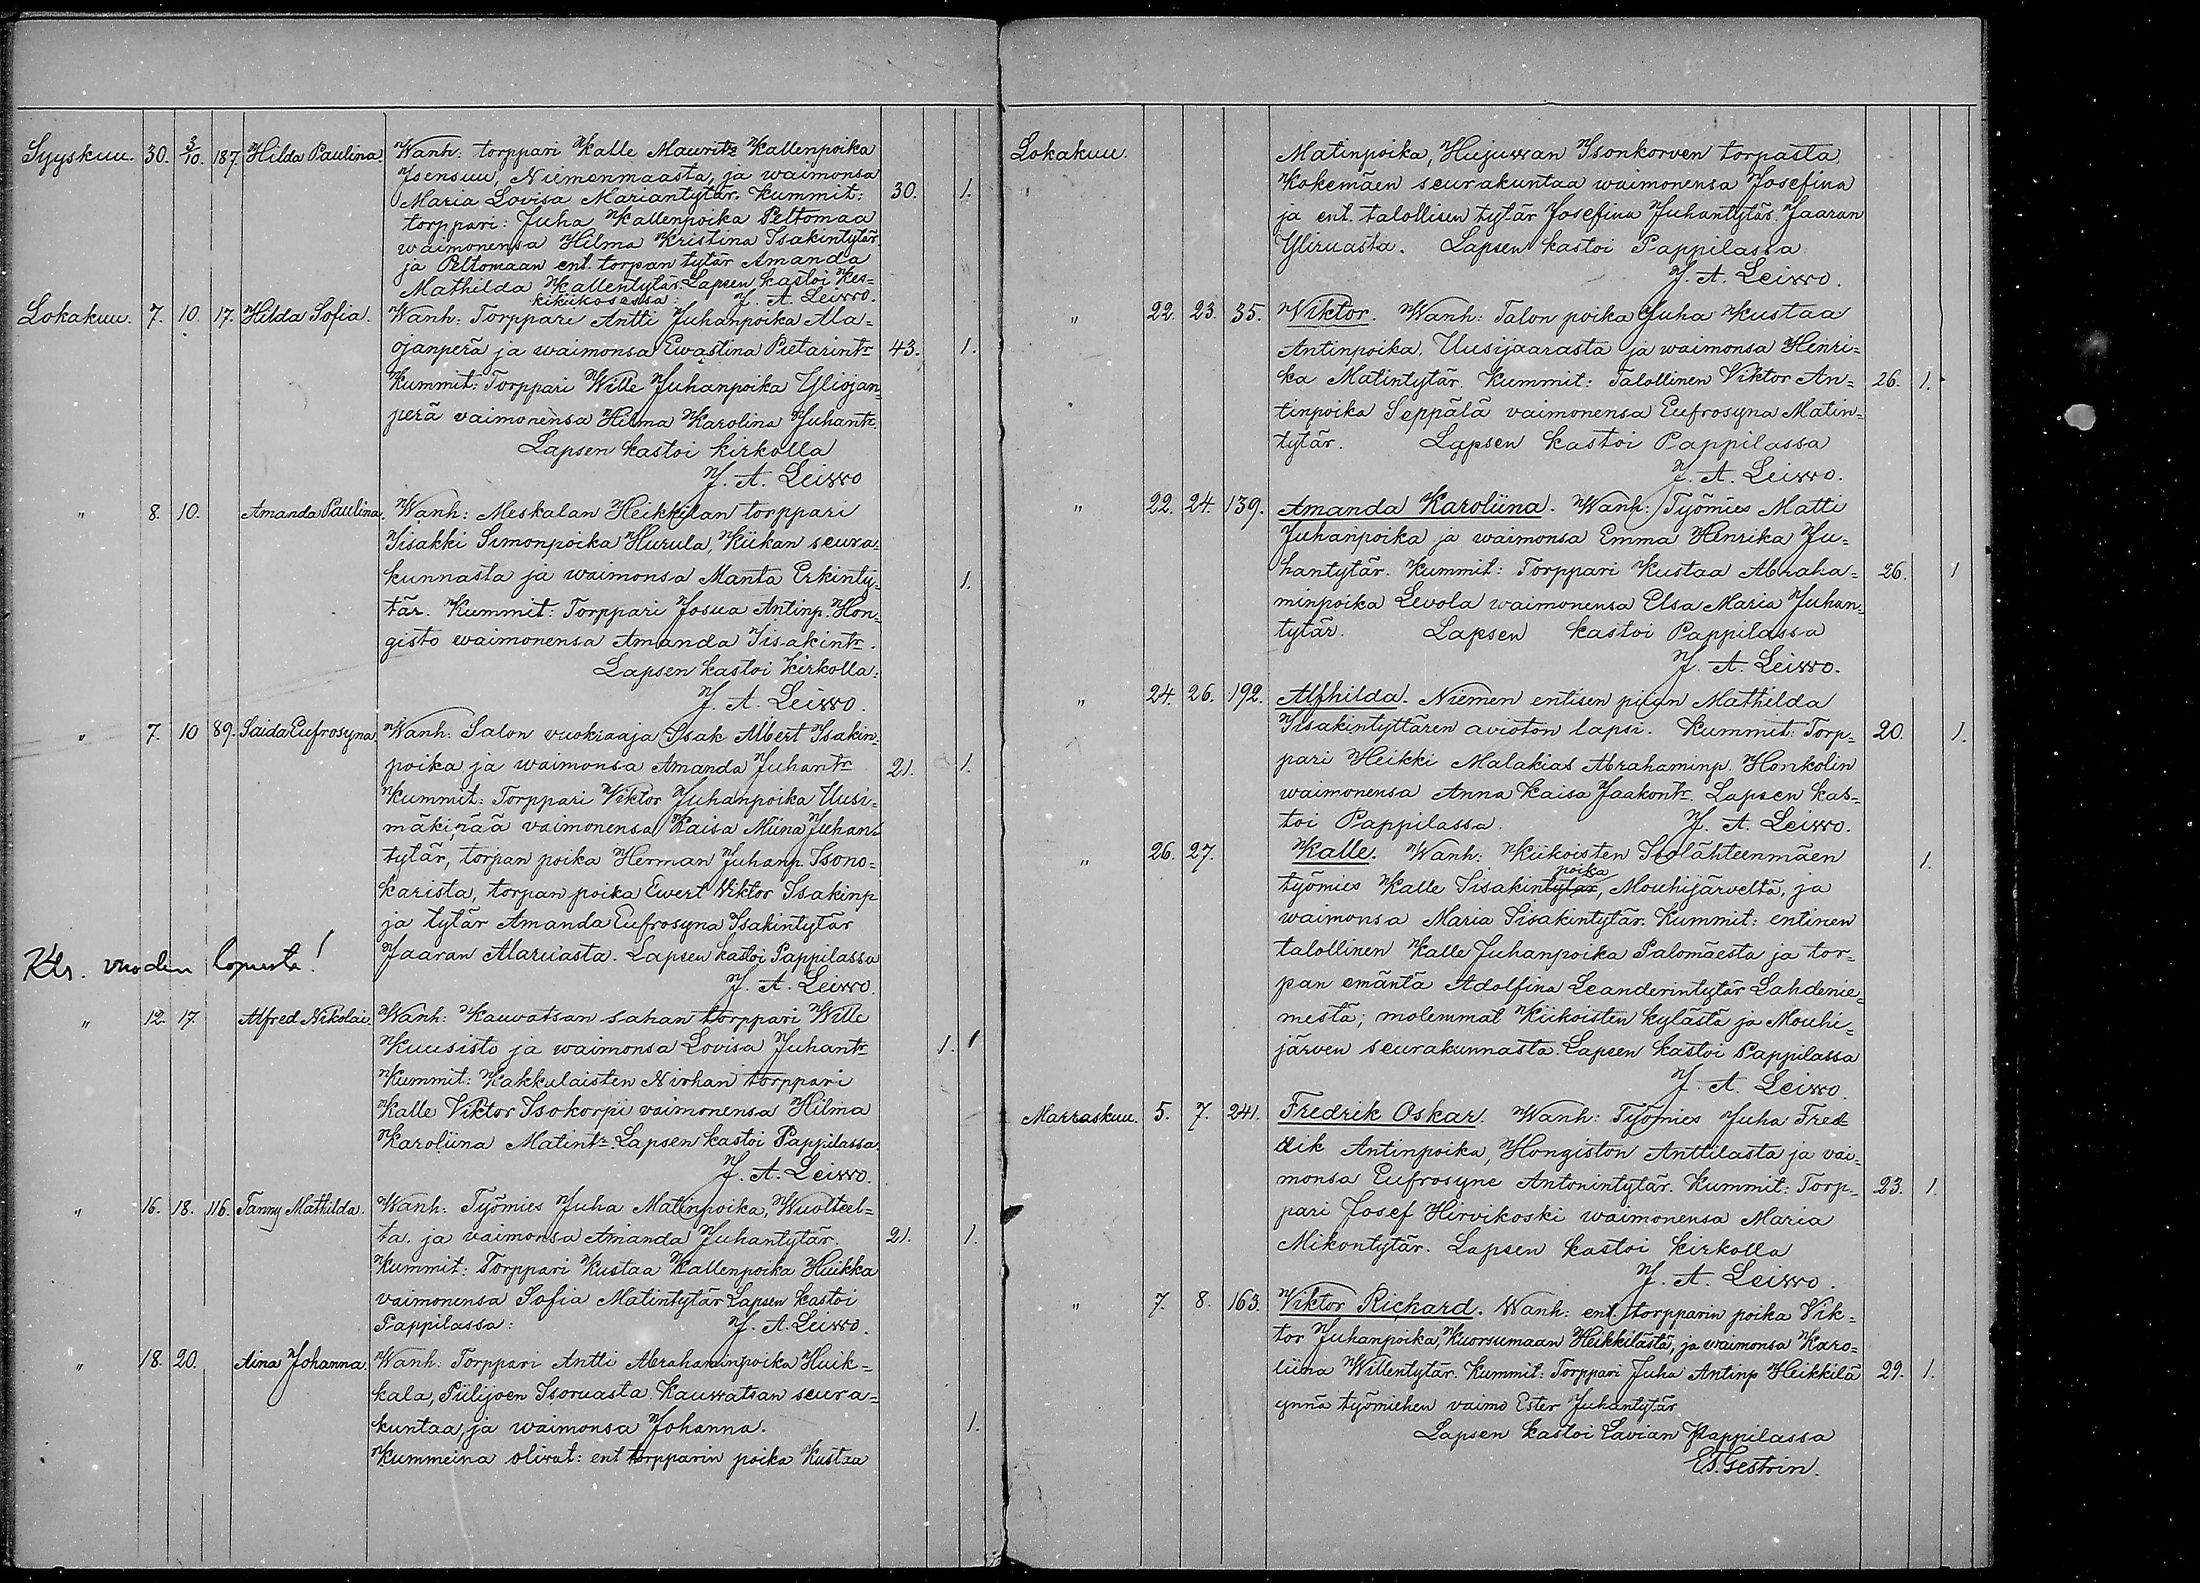 Syyskuu. 30. 3/10. 187. Hilda Paulina. Wanh: torppari Kalle Mauritz Kallenpoika
Isensuu, Niemenmaasta, ja waimonsa
Maria Lovisa Mariantytär. Kummit: 30. 1.
torppari: Juha Kallenpoika Peltomaa
waimonensa Hilma Kristina Isakintytär
ja Peltomaan ent. torpan tytär Amanda
Mathilda Kallentytär. Lapsen kastoi Kes-
kikiikosessa: J. A. Leiwo.
Lokakuu. 7. 10. 17. Hilda Sofia. Wanh: Torppari Antti Juhanpoika Ala-
ojanperä ja waimonsa Ewastina Pietarintr 43. 1.
Kummit: Torppari Wille Juhanpoika Yliojan-
perä vaimonensa Hilma Karolina Juhantr.
Lapsen kastoi kirkolla
J. A. Leiwo
" 8. 10. Amanda Paulina. Wanh: Meskalan Heikkilan torppari
Iisakki Simonpoika Hurula, Kiikan seura-
kunnasta ja waimonsa Manta Erkinty- 1.
tär. Kummit: Torppari Josua Antinp. Hon-
gisto waimonensa Amanda Iisakintr.
Lapsen kastoi kirkolla:
J. A. Leiwo.
" 7. 10 89. Saida Eufrosyna Wanh: Salon vuokraaja Isak Albert Isakin-
poika ja waimonsa Amanda Juhantr 21. 1.
Kummit: Torppari Viktor Juhanpoika Uusi-
mäkipää vaimonensa Kaisa Miina Juhan-
tytär, torpan poika Herman Juhanp. Isono-
karista, torpan poika Ewert Viktor Isakinp
ja tytär Amanda Eufrosyna Isakintytär
Jaaran Alaruasta. Lapsen kastoi Pappilassa
J. A. Leiwo.
Kts. vuoden lopusta!
" 12. 17. Alfred Nikolai. Wanh: Kauvatsan sahan torppari Wille
Kuusisto ja waimonsa Lovisa Juhantr 1. 1
Kummit: Kakkulaisten Nirhan torppari
Kalle Viktor Isokorpi vaimonensa Hilma
Karoliina Matintr. Lapsen kastoi Pappilassa.
J. A. Leiwo.
" 16. 18. 116. Fanny Mathilda. Wanh: Työmies Juha Matinpoika, Wuolteel-
ta, ja vaimonsa Amanda Juhantytär. 21. 1.
Kummit: Torppari Kustaa Kallenpoika Huikka
vaimonensa Sofia Matintytär Lapsen kastoi
Pappilassa: J. A. Leiwo.
" 18. 20. Aina Johanna. Wanh: Torppari Antti Abrahaminpoika Huik-
kala, Piilijoen Isoruasta Kauwatsan seura-
kuntaa, ja waimonsa Johanna. 1.
Kummeina oliwat: ent torpparin poika Kustaa
Lokakuu. Matinpoika, Hujuwan Isonkorven torpasta,
Kokemäen seurakuntaa waimonensa Josefina
ja ent. talollisen tytär Josefina Juhantytär Jaaran
Yliruasta. Lapsen kastoi Pappilassa
J. A. Leiwo.
" 22. 23. 35. Viktor. Wanh: Talon poika Juha Kustaa
Antinpoika, Uusijaarasta ja waimonsa Henri-
ka Matintytär. Kummit: Talollinen Viktor An- 26. 1.
tinpoika Seppälä vaimonensa Eufrosyna Matin-
tytär. Lapsen kastoi Pappilassa
J. A. Leiwo.
" 22. 24. 139. Amanda Karoliina. Wanh: Työmies Matti
Juhanpoika ja waimonsa Emma Henrika Ju-
hantytär. Kummit: Torppari Kustaa Abraha- 26. 1
minpoika Levola waimonensa Elsa Maria Juhan-
tytär. Lapsen kastoi Pappilassa
J. A. Leiwo.
" 24. 26. 192. Alfhilda. Niemen entisen piian Mathilda
Iisakintyttären avioton lapsi. Kummit: Torp- 20. 1.
pari Heikki Malakias Abrahaminp. Honkolin
waimonensa Anna Kaisa Jaakontr. Lapsen kas-
toi Pappilassa. J. A. Leiwo.
" 26. 27. Kalle. Wanh: Kiikoisten Isolähteenmäen 1.
poika
työmies Kalle Iisakintytär, Mouhijärveltä, ja
waimonsa Maria Iisakintytär. Kummit: entinen
talollinen Kalle Juhanpoika Palomäestä ja tor-
pan emäntä Adolfina Leanderintytär Lahdenie-
mestä; molemmat Kiikoisten kylästä ja Mouhi-
järven seurakunnasta. Lapsen kastoi Pappilassa
J. A. Leiwo.
Marraskuu. 5. 7. 241. Fredrik Oskar. Wanh: Työmies Juha Fred-
rik Antinpoika, Hongiston Anttilasta ja vai-
monsa Eufrosyne Antonintytär. Kummit: Torp- 23. 1.
pari Josef Hirvikoski waimonensa Maria
Mikontytär. Lapsen kastoi kirkolla
J. A. Leiwo.
" 7. 8. 163. Viktor Richard. Wanh: ent torpparin poika Vik-
tor Juhanpoika, Kuorsumaan Heikkilästä, ja waimonsa Karo-
liina Willentytär. Kummit: Torppari Juha Antinp Heikkilä 29. 1.
ynnä työmiehen vaimo Ester Juhantytär
Lapsen kastoi Lavian Pappilassa
Gestrin.